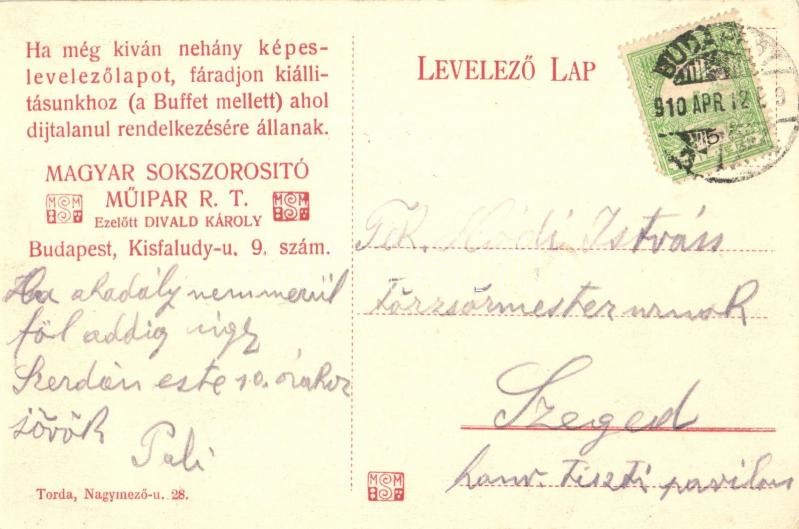 Ha még kiván nehány képes-
levelezőlapot, fáradjon kiálli-
tásunkhoz (a Buffet mellett) ahol
dijtalanul rendelkezésére állanak.
MAGYAR SOKSZOROSITÓ
MŰIPAR R. T.
Ezelőtt DIVALD KÁROLY
Budapest, Kisfaludy-u. 9. szám.
Ha akadály nem merül
föl addig úgy
Szerdán este 10. órakor
jövök
Pali
Torda, Nagymező-u. 28.
LEVELEZŐ LAP
BUDAPEST
910 APR 12
Tek. Hódi István
Törzsőrmester urnak
Szeged
honv. tiszti pavilon